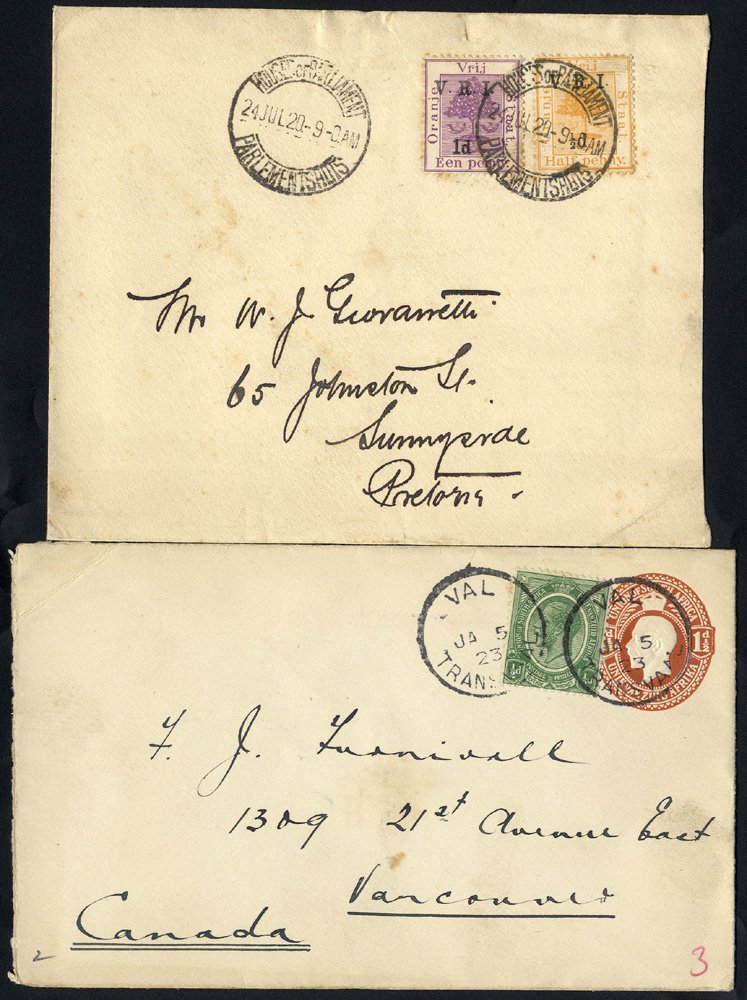 HOUSES OF PARLIAMENT
24 JUL 20-9-0AM
PARLEMENTSHUIS
Vrij
Oranje
Staat
V.R.I.
1d
Een penny.
Vrij
R.I.
Staat
½d
Half penny.
HOUSES OF PARLIAMENT
24 JUL 20-9-0AM
PARLEMENTSHUIS
Mr W. J. Giovannetti
65 Johnston St.
Sunnyside
Pretoria.
VAL
JA 5
23
TRANS
½d
UNION OF SOUTH AFRICA
1½d
UNIE VAN ZUID AFRIKA
VAL
JA 5
23
TRANSVAAL
F. J. Furnivall
1309 21st Avenue East
Vancouver
Canada
2
3